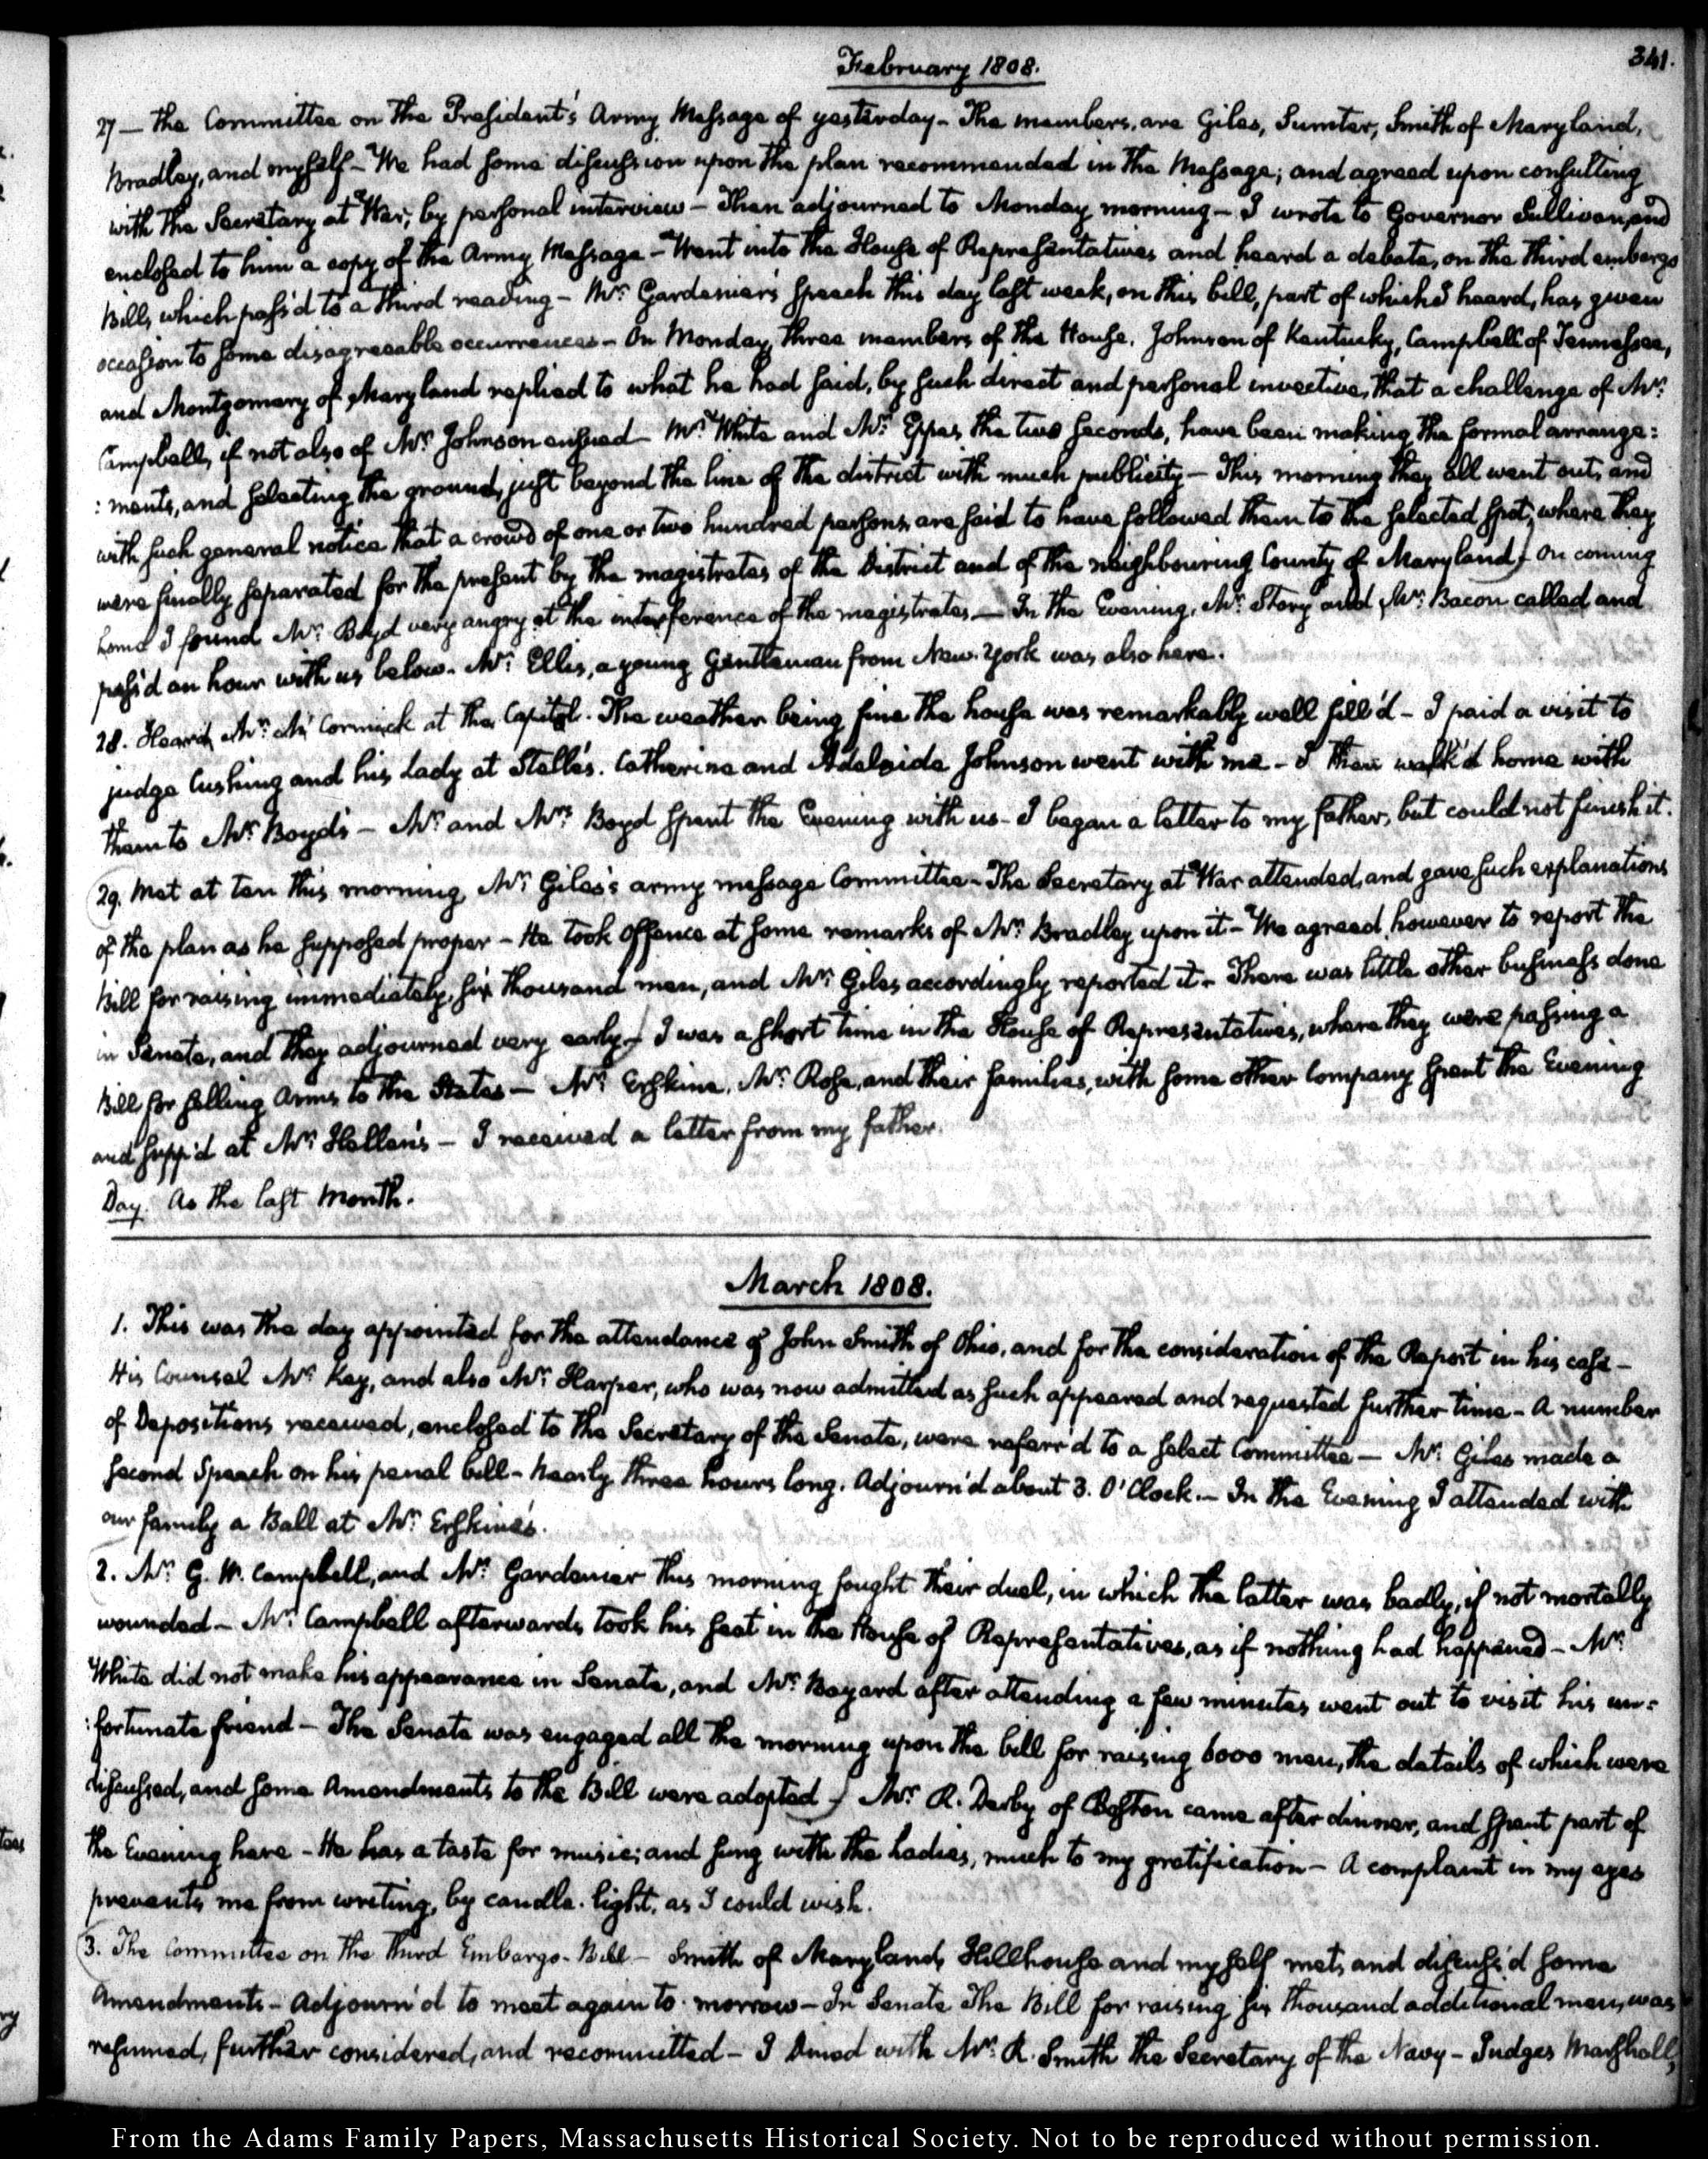 February 1808.
341.
27 — The Committee on the President's Army Message of yesterday — The members, are Giles, Sumter, Smith of Maryland,
Bradley, and myself — We had some discussion upon the plan recommended in the Message; and agreed upon consulting
with the Secretary at War, by personal interview — Then adjourned to Monday morning — I wrote to Governor Sullivan, and
enclosed to him a copy of the Army Message — Went into the House of Representatives and heard a debate, on the third embargo
Bill, which pass'd to a third reading — Mr. Gardenier's speech this day last week, on this bill, part of which I heard, has given
occasion to some disagreeable occurrences — On Monday, three members of the House, Johnson of Kentucky, Campbell of Tennessee,
and Montgomery of Maryland replied to what he had said, by such direct and personal invective, that a challenge of Mr.
Campbell, if not also of Mr. Johnson ensued — Mr. White and Mr. Eppes the two seconds, have been making the formal arrange:
: ments, and selecting the ground, just beyond the line of the district with much publicity — This morning they all went out, and
with such general notice that a crowd of one or two hundred persons are said to have followed them to the selected spot, where they
were finally separated for the present by the magistrates of the District and of the neighbouring County of Maryland) — On coming
home I found Mr. Boyd very angry at the interference of the magistrates. — In the Evening, Mr. Story and Mr. Bacon called and
pass'd an hour with us below. Mr. Ellis, a young Gentleman from New-York was also here.
28. Heard Mr. Mc Cormick at the Capitol. The weather being fine the house was remarkably well fill'd — I paid a visit to
judge Cushing and his Lady at Stelle's. Catherine and Adelaide Johnson went with me — I then walk'd home with
them to Mr. Boyd's — Mr. and Mrs. Boyd spent the Evening with us — I began a letter to my father, but could not finish it.
29. Met at ten this morning, Mr. Giles's army message Committee — The Secretary at War attended, and gave such explanations
of the plan as he supposed proper — He took offence at some remarks of Mr. Bradley upon it — We agreed, however to report the
Bill for raising immediately, six thousand men, and Mr. Giles accordingly reported it — There was little other business done
in Senate, and they adjourned very early —) I was a short time in the House of Representatives, where they were passing a
Bill for selling Arms to the States — Mr. Erskine, Mr. Rose, and their families, with some other Company spent the Evening
and supp'd at Mr. Hellen's — I received a letter from my father.
Day. As the last Month.
March 1808.
1. This was the day appointed for the attendance of John Smith of Ohio, and for the consideration of the Report in his case —
His Counsel Mr. Key, and also Mr. Harper, who was now admitted as such appeared and requested further time — A number
of Depositions received, enclosed to the Secretary of the Senate, were referr'd to a select Committee — Mr. Giles made a
second Speech on his penal bill — Nearly three hours long. Adjourn'd about 3. O'Clock. — In the Evening I attended with
our family a Ball at Mr. Erskine's.
2. Mr. G. W. Campbell, and Mr. Gardenier this morning fought their duel, in which the latter was badly, if not mortally
wounded — Mr. Campbell afterwards took his seat in the House of Representatives, as if nothing had happened — Mr.
White did not make his appearance in Senate, and Mr. Bayard after attending a few minutes went out to visit his un:
: fortunate friend — The Senate was engaged all the morning upon the bill for raising 6000 men, the details of which were
discussed, and some Amendments to the Bill were adopted —) Mr. R. Derby of Boston came after dinner, and spent part of
the Evening here — He has a taste for music; and sung with the Ladies, much to my gratification — A complaint in my eyes
prevents me from writing, by candle-light, as I could wish.
3. The Committee on the Third Embargo-Bill — Smith of Maryland, Hillhouse and myself met, and discuss'd some
Amendments — Adjourn'd to meet again to-morrow — In Senate The Bill for raising six thousand additional men, was
resumed, further considered, and recommitted — I dined with Mr. R. Smith the Secretary of the Navy — Judges Marshall,
From the Adams Family Papers, Massachusetts Historical Society. Not to be reproduced without permission.